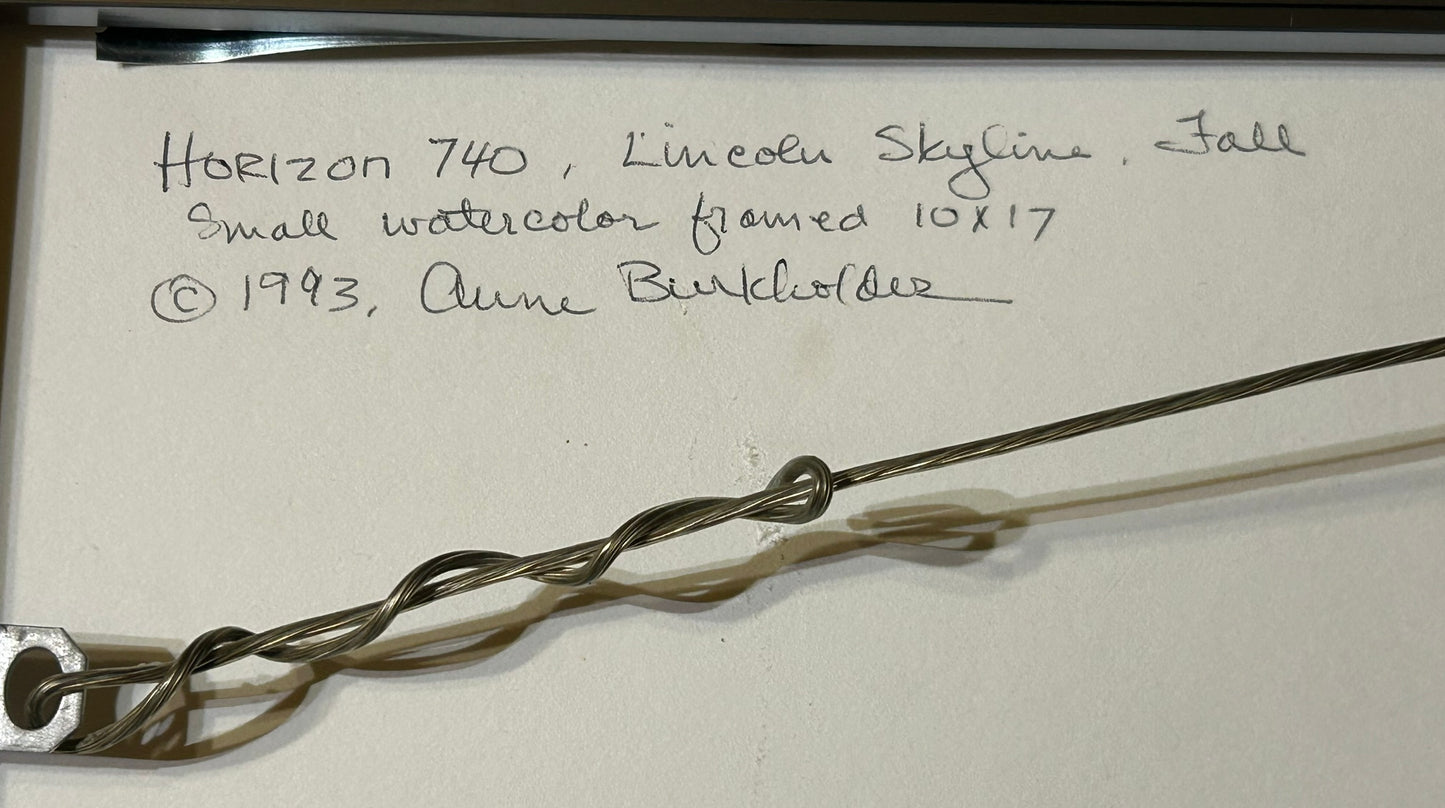 HORIZON 740, Lincoln Skyline, Fall
Small watercolor framed 10x17
© 1993, Anne Burkholder